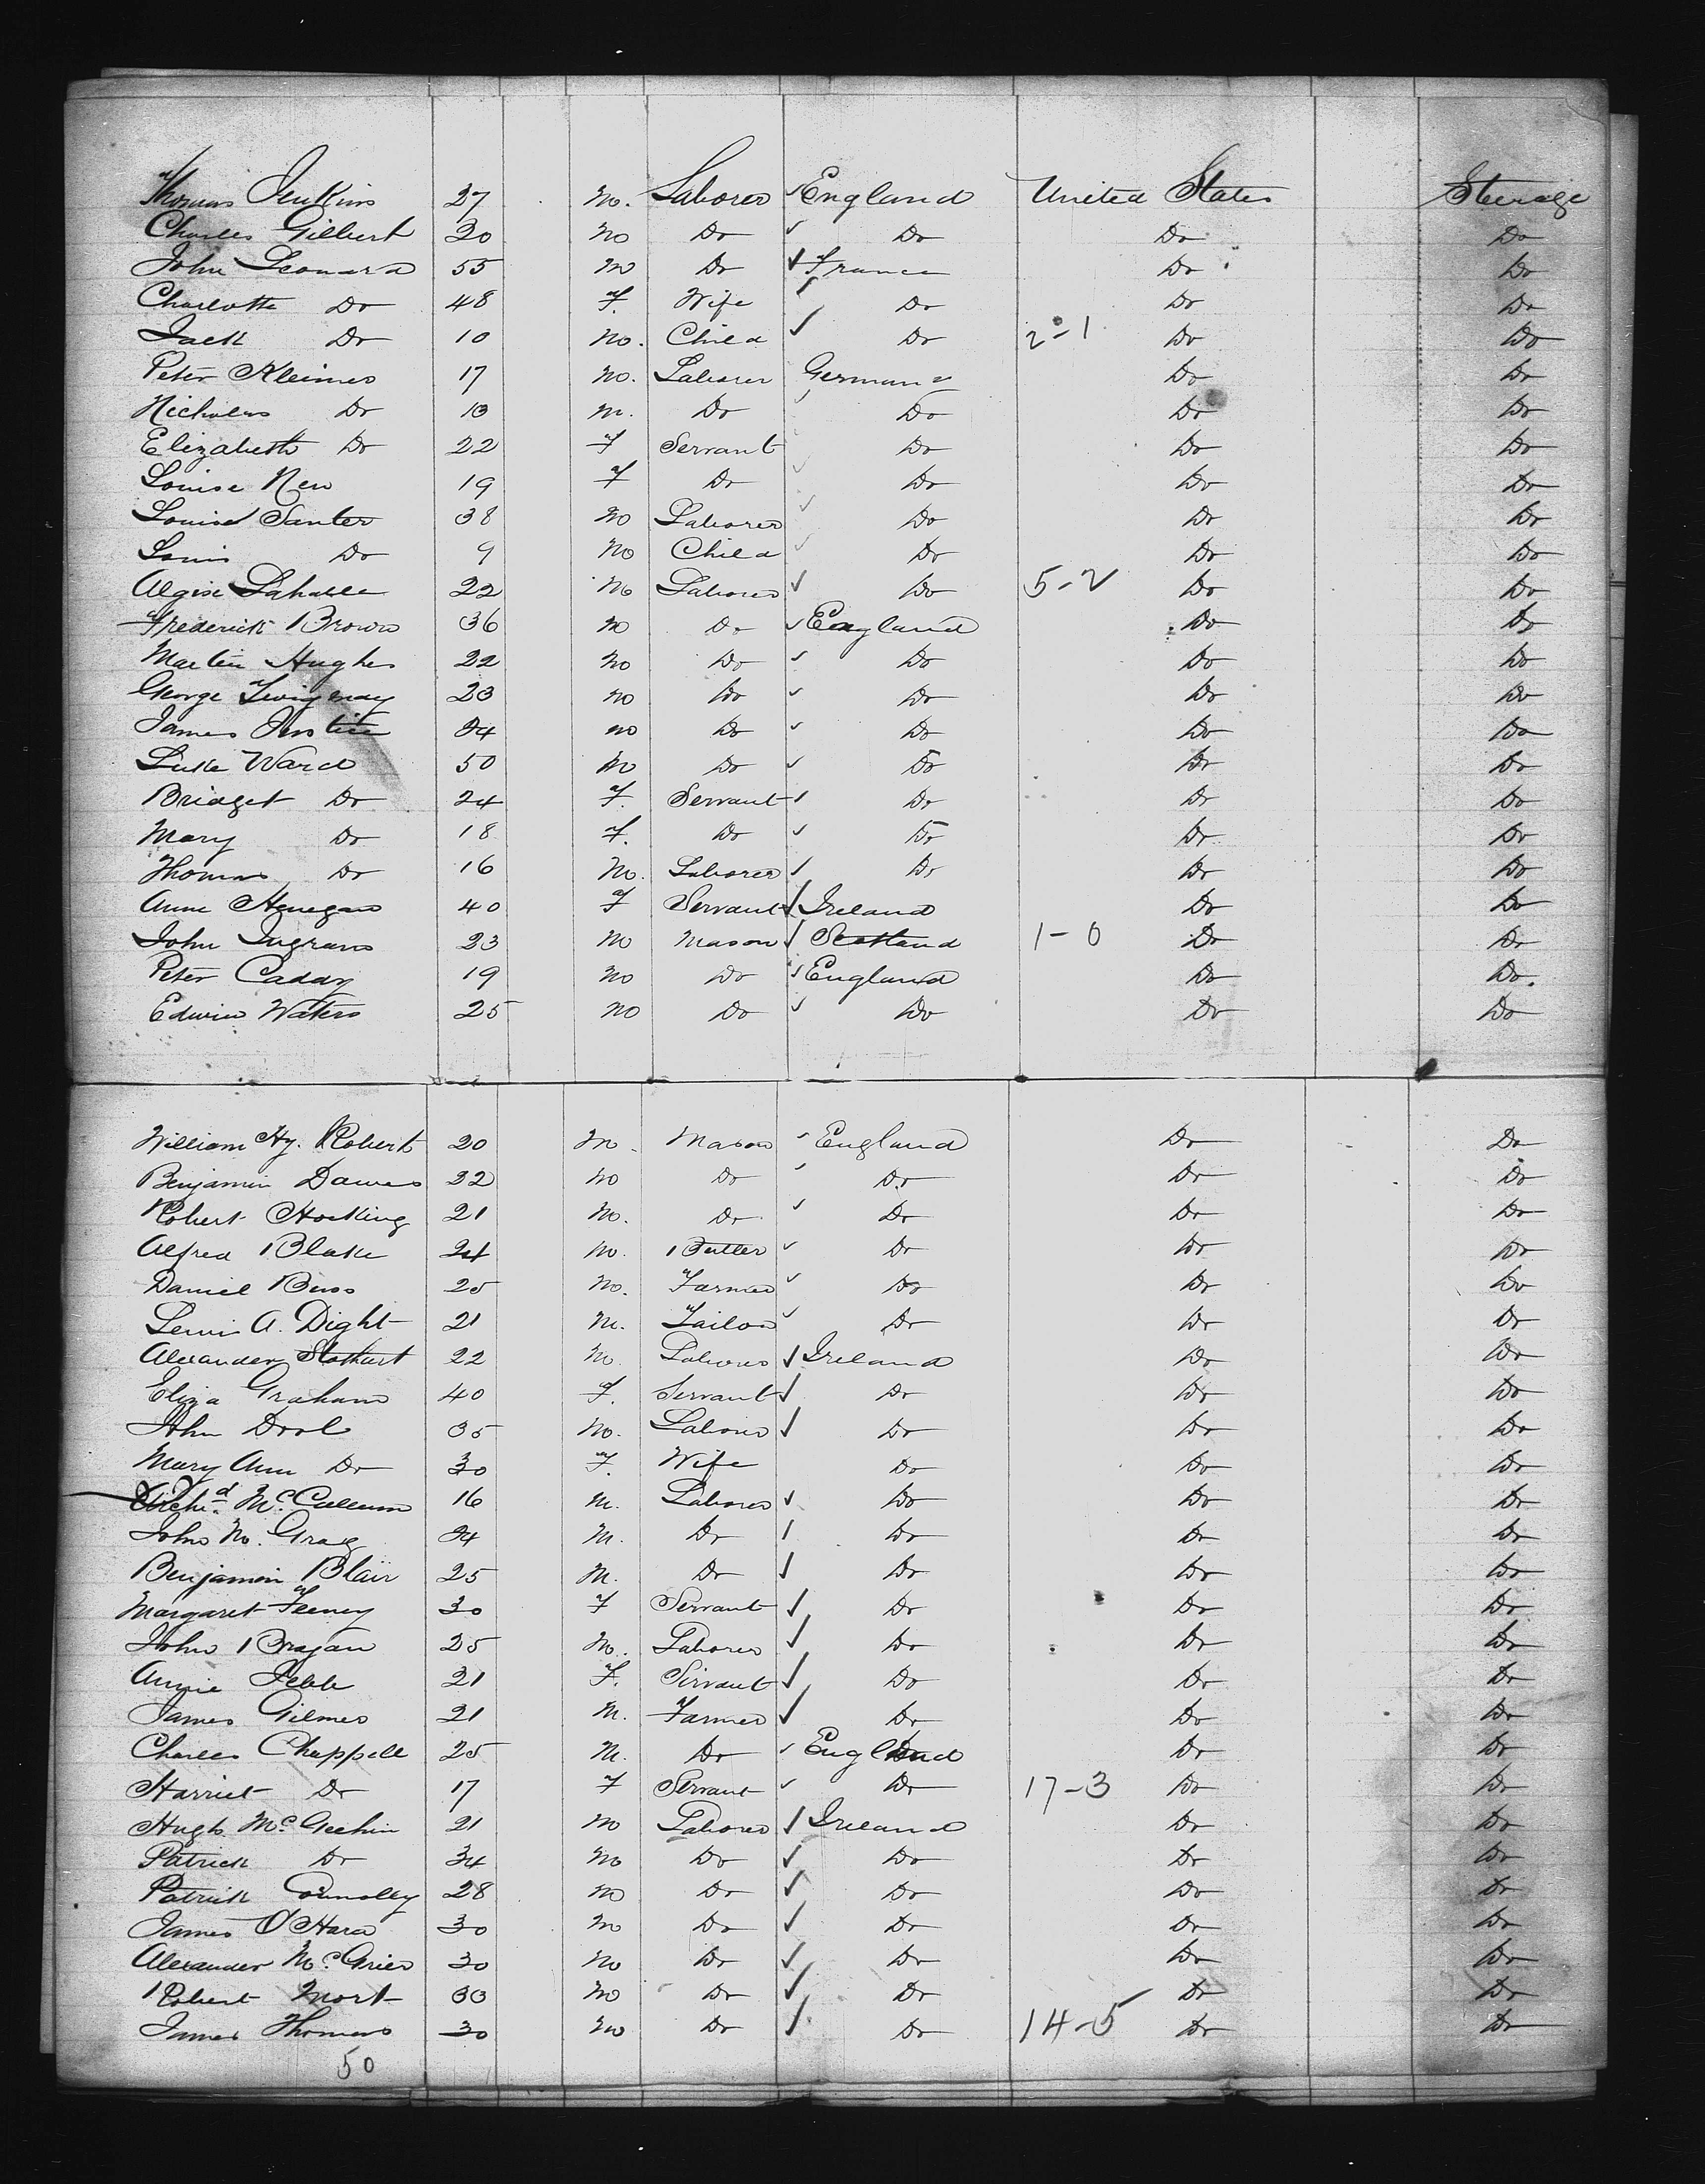 Thomas Jenkins 27 M. Laborer ✓ England United States Steerage
Charles Gilbert 30 M Do ✓ Do Do Do
John Leonard 55 M Do ✓ France Do Do
Charlotte Do 48 F. Wife ✓ Do Do Do
Jack Do 10 M. Child ✓ Do 2-1 Do Do
Peter 17 M. Laborer Germany Do Do
Nicholas Do M. Do ✓ Do Do Do
Elizabeth Do 22 F Servant Do Do Do
Louise New 19 F Do ✓ Do Do Do
Louis Santer 38 M Laborer ✓ Do Do Do
Louis Do 9 M Child ✓ Do Do Do
22 M Laborer ✓ Do 5-2 Do Do
Frederick Brown 36 M Do ✓ England Do Do
Martin Hughes 22 M Do ✓ Do Do Do
George 23 M Do ✓ Do Do Do
James Justice 24 M Do ✓ Do Do Do
Luke Ward 50 M Do ✓ Do Do Do
Bridget Do 24 F. Servant ✓ Do Do Do
Mary Do 18 F. Do ✓ Do Do Do
Thomas Do 16 M. Laborer ✓ Do Do Do
Anne Henegan 40 F Servant ✓ Ireland Do Do
John Ingram 23 M Mason ✓ Scotland 1-0 Do Do
Peter Caddy 19 M Do ✓ England Do Do.
Edwin Waters 25 M Do ✓ Do Do Do
William Hy. Robert 20 M. Mason ✓ England Do Do
Benjamin Dawes 32 M Do ✓ Do Do Do
Robert Hocking 21 M. Do ✓ Do Do Do
Alfred Blake 24 M. Butler ✓ Do Do Do
Daniel Buss 25 M. Farmer ✓ Do Do Do
Lewis A. Dight 21 M. Tailor ✓ Do Do Do
Alexander Stothart 22 M. Laborer ✓ Ireland Do Do
Eliza Graham 40 F. Servant ✓ Do Do Do
John Dool 35 M. Laborer ✓ Do Do Do
Mary Ann Do 30 F. Wife Do Do Do
Archd. McCullum 16 M. Laborer ✓ Do Do Do
John M. Gray 24 M. Do ✓ Do Do Do
Benjamin Blair 25 M. Do ✓ Do Do Do
Margaret Feeney 30 F Servant ✓ Do Do Do
John Brogan 25 M. Laborer ✓ Do Do Do
Annie Jebb 21 F. Servant ✓ Do Do Do
James Gilmer 21 M. Farmer ✓ Do Do Do
Charles Chappell 25 M. Do ✓ England Do Do
Harriet Do 17 F Servant ✓ Do 17-3 Do Do
Hugh McGeehin 21 M Laborer ✓ Ireland Do Do
Patrick Do 34 M Do ✓ Do Do Do
Patrick Connolly 28 M Do ✓ Do Do Do
James O'Hara 30 M Do ✓ Do Do Do
Alexander McGrier 30 M Do ✓ Do Do Do
Robert Mort 33 M Do ✓ Do Do Do
James Thomas 30 M Do ✓ Do 14-5 Do Do
50